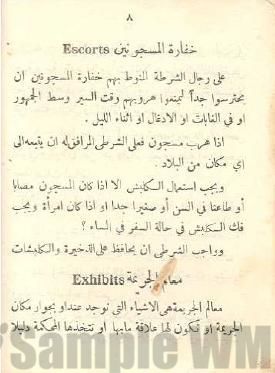 ٨
خفارة المسجونين Escorts
على رجال الشرطة المنوط بهم خفارة المسجونين ان
يحترسوا جداً ليمنعوا هروبهم وقت السير وسط الجمهور
او في الغابات او الادغال او اثناء الليل .
اذا هرب مسجون فعلى الشرطى المرافق له ان يتبعه الى
اي مكان من البلاد .
ويجب استعمال الكلبش الا اذا كان المسجون مصابا
أو طاعنا في السن أو صغيرا جدا او اذا كان امرأة ويجب
فك الكلبش في حالة السفر في الماء ؟
وواجب الشرطى ان يحافظ على الذخيرة والكلبشات
معالم الجريمة Exhibits
معالم الجريمة هى الاشياء التي توجد عند او بجوار مكان
الجريمة او تكون لها علاقة مابها او تتخذها المحكمة دليلا
Sample WM